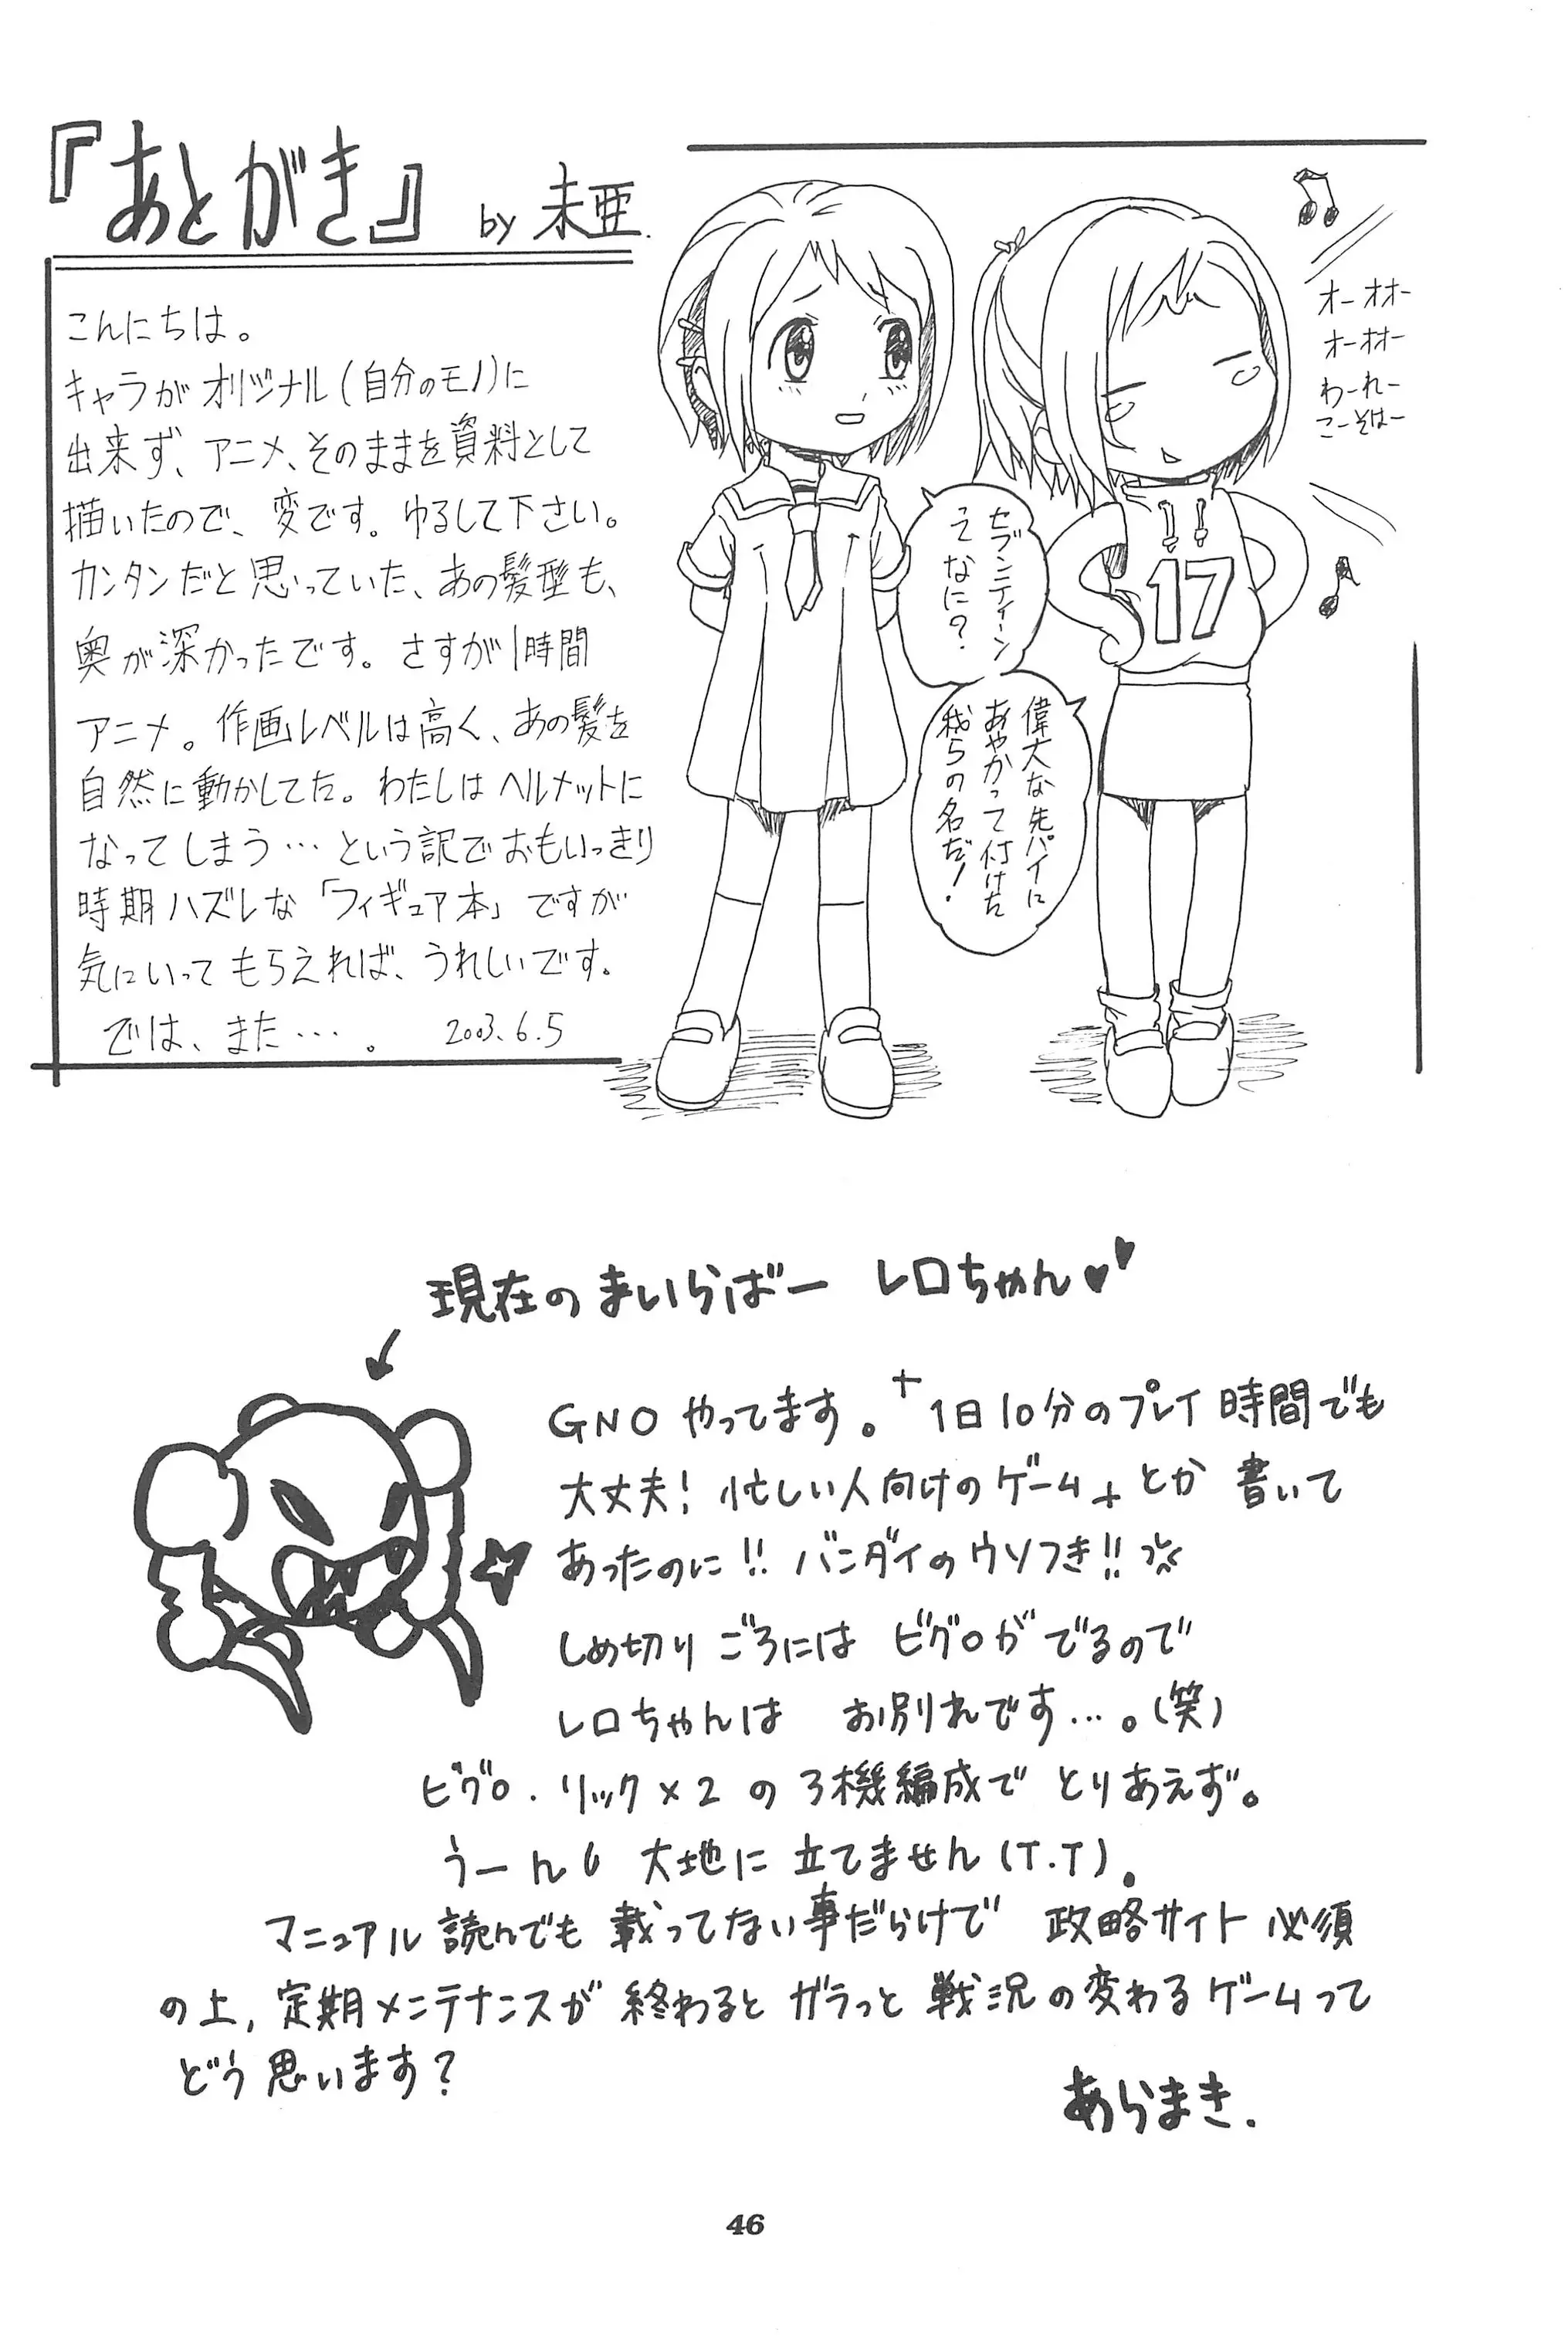 『あとがき』 by 未亜.
こんにちは。
キャラが オリジナル(自分のモノ)に
出来ず、アニメ、そのままを資料として
描いたので、変です。ゆるして下さい。
カンタンだと思っていた、あの髪型も、
奥が深かったです。さすが1時間
アニメ。作画レベルは高く、あの髪を
自然に動かしてた。わたしは ヘルメットに
なってしまう… という訳でおもいっきり
時期ハズレな「フィギュア本」ですが
気にいって もらえれば、うれしいです。
では、また…。 2003.6.5
オーオオー
オーオオー
わーれー
こーそはー
セブンティーン
って なに?
偉大な先パイに
あやかって付けた
我らの名だ!
17
現在の まいらばー レロちゃん♥♥
GNO やってます。 1日10分のプレイ時間でも
大丈夫! 忙しい人向けのゲーム とか 書いて
あったのに!! バンダイの ウソつき!!
しめ切り ごろには ビグロが でるので
レロちゃんは お別れです…。(笑)
ビグロ. リック×2 の 3機編成で とりあえず。
うーん 大地に 立てません(T.T).
マニュアル 読んでも 載ってない事だらけで 攻略サイト 必須
の上, 定期メンテナンスが 終わると ガラっと 戦況の変わるゲームって
どう 思います?
あらまき.
46